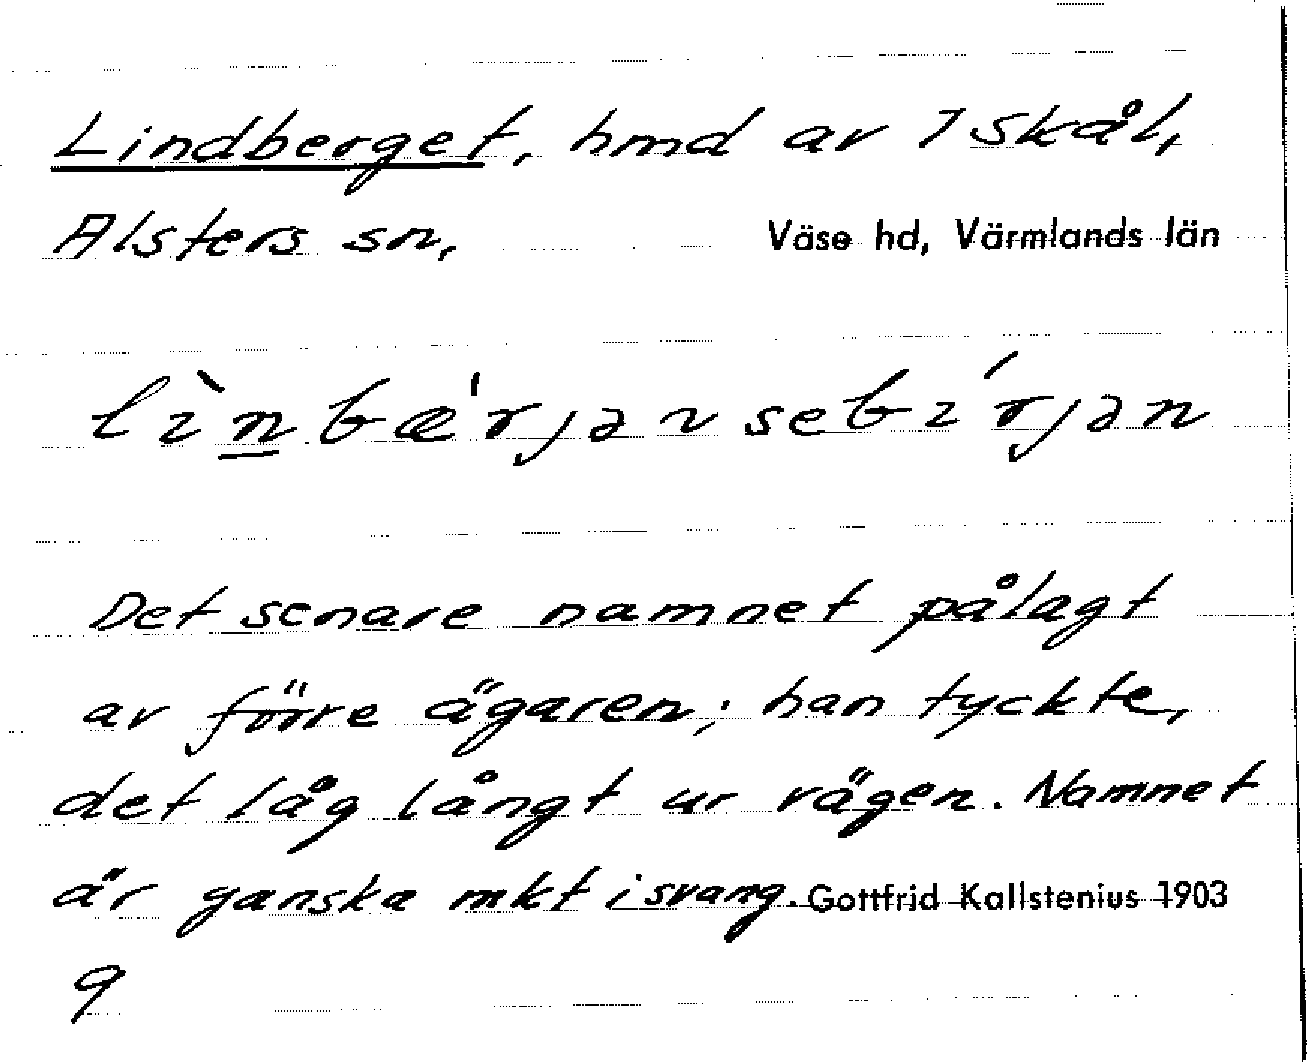 Lindberget, hmd av 1 Skål,
Alsters sn, Väse hd, Värmlands län
lìnbæ'rjəv sebi'rjən
Det senare namnet pålagt
av förre ägaren; han tyckte,
det låg långt ur vägen. Namnet
är ganska mkt i svang. Gottfrid Kallstenius 1903
9